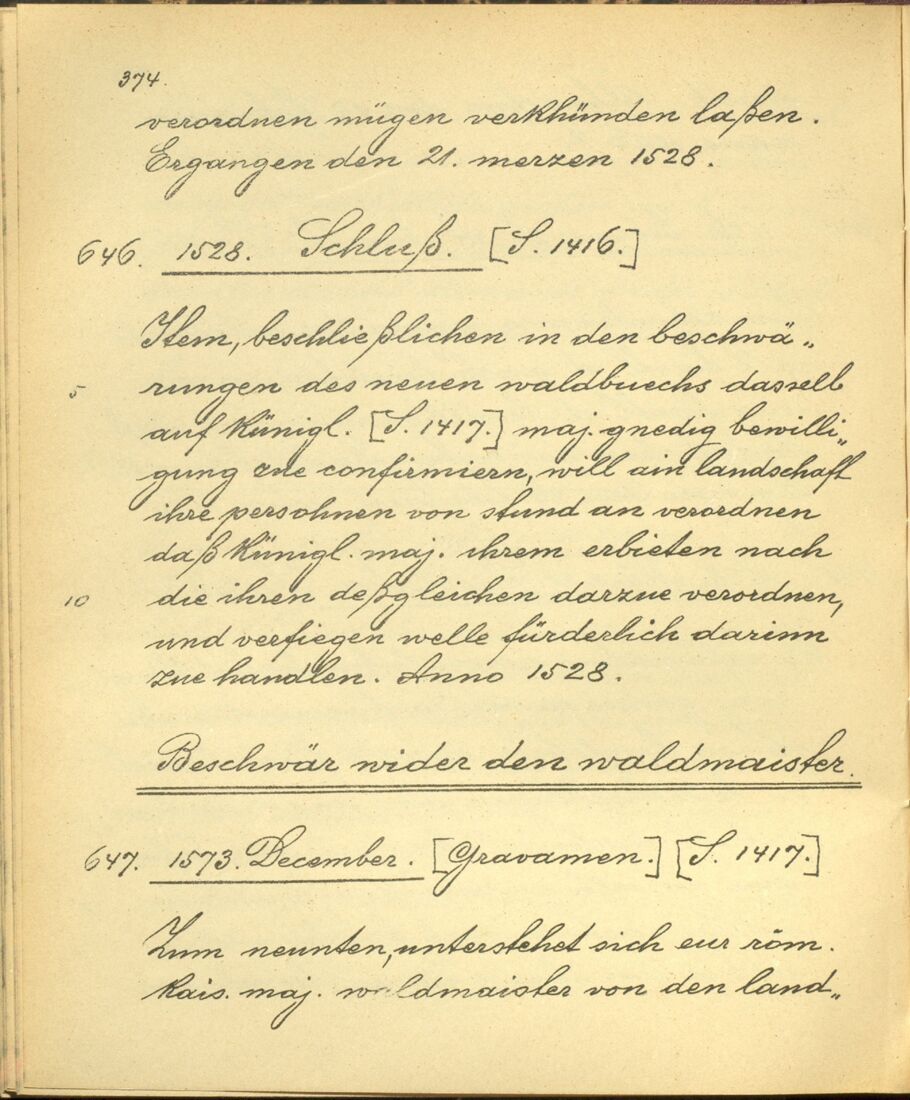 374.
verordnen mügen verkhünden laßen.
Ergangen den 21. merzen 1528.
646. 1528. Schluß. [S. 1416.]
Item, beschließlichen in den beschwä„
5 rungen des neuen waldbuechs dassell
auf künigl. [S. 1417.] maj. gnedig bewilli„
gung zue confirmiern, will ain landschaft
ihre persohnen von stund an verordnen
daß künigl. maj. ihrem erbieten nach
10 die ihren deßgleichen darzue verordnen,
und verfiegen welle fürderlich darinn
zue handlen. Anno 1528.
Beschwär wider den waldmaister.
647. 1573. December. [Gravamen.] [S. 1417.]
Zum neunten, unterstehet sich eur röm.
kais. maj. waldmaister von den land„